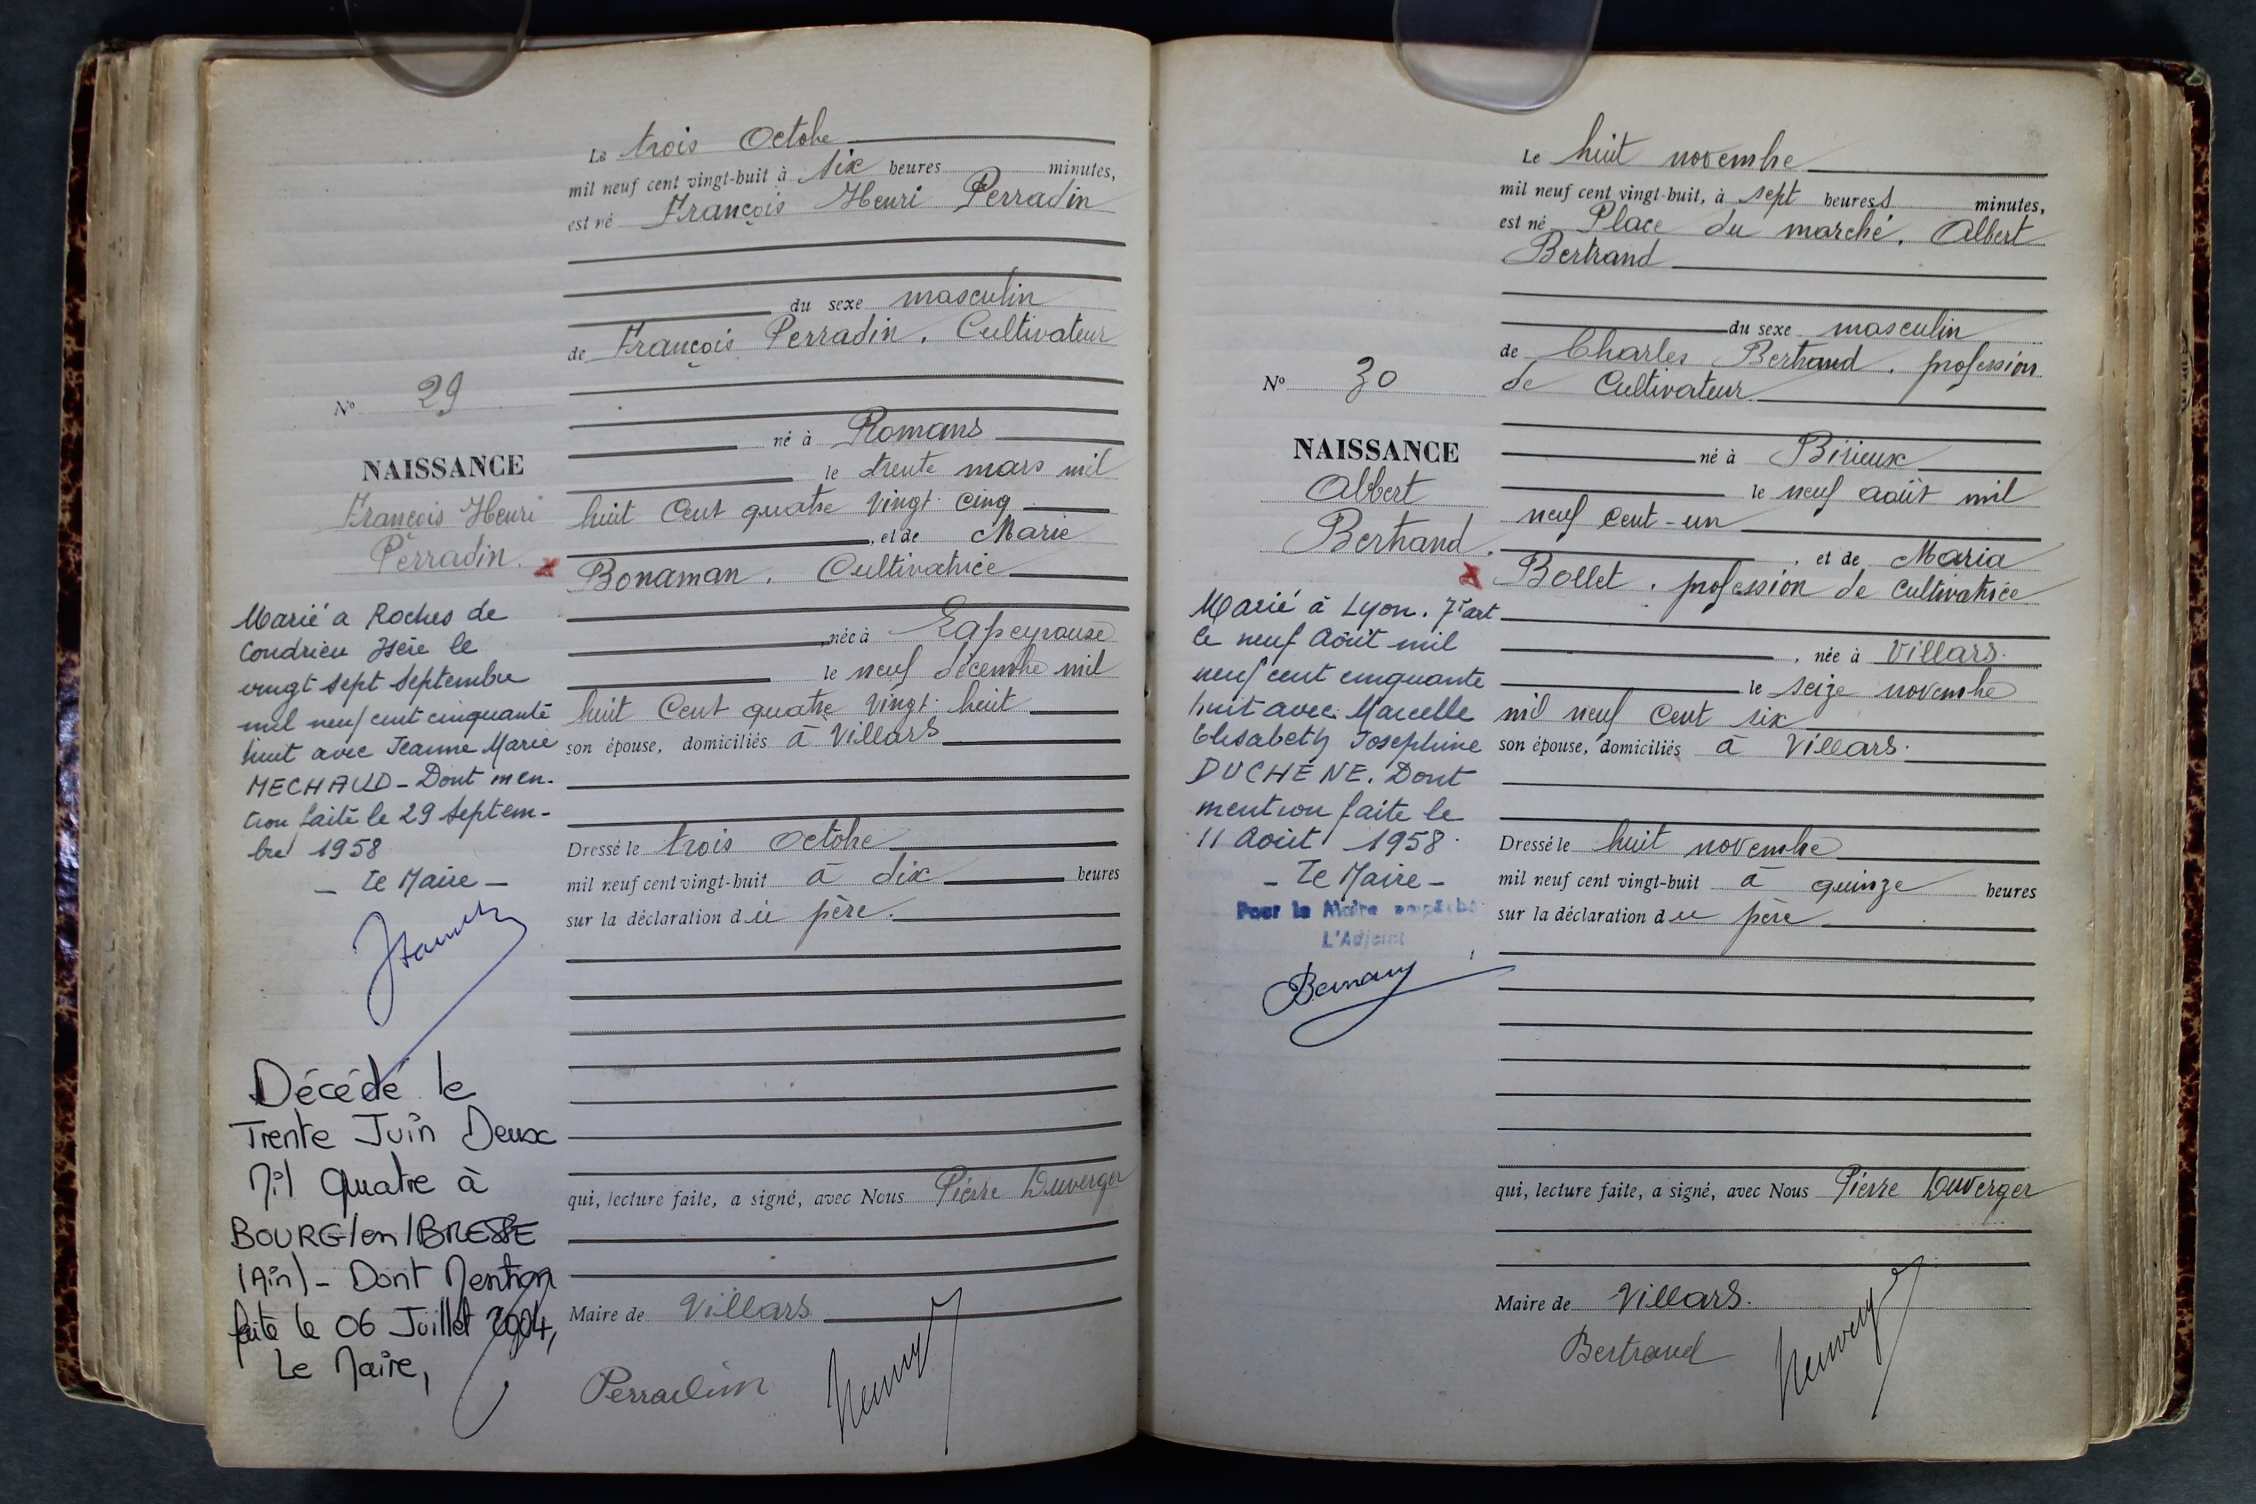 Le trois Octobre
mil neuf cent vingt-huit à six heures minutes,
est né François Henri Perradin
du sexe masculin
de François Perradin. Cultivateur
né à Romans
le trente mars mil
huit Cent quatre Vingt-cinq
, et de Marie
Bonaman. Cultivatrice
, née à Lapeyrouse
le neuf décembre mil
huit Cent quatre Vingt-huit
son épouse, domiciliés à Villars
Dressé le trois Octobre
mil neuf cent vingt-huit à dix heures
sur la déclaration du père.
qui, lecture faite, a signé, avec Nous Pierre Duverger
Maire de Villars
Perradin
No 29
NAISSANCE
François Henri
Perradin.
Marié a Roches de
Condrieu Isère le
vingt sept Septembre
mil neuf cent cinquante
huit avec Jeanne Marie
MECHAUD - Dont men-
tion faite le 29 Septem-
bre 1958
- Le Maire -
Décédé le
Trente Juin Deux
Mil Quatre à
BOURG/en/BRESSE
(Ain) - Dont Mention
faite le 06 Juillet 2004,
Le Maire,
Le huit novembre
mil neuf cent vingt-huit, à sept heures minutes,
est né Place du marché. Albert
Bertrand
du sexe masculin
de Charles Bertrand. profession
de Cultivateur
né à Birieux
le neuf août mil
neuf Cent-un
, et de Maria
Bollet. profession de Cultivatrice
, née à Villars.
le seize novembre
mil neuf Cent six
son épouse, domiciliés à Villars.
Dressé le huit novembre
mil neuf cent vingt-huit à quinze heures
sur la déclaration du père
qui, lecture faite, a signé, avec Nous Pierre Duverger
Maire de Villars.
Bertrand
No 30
NAISSANCE
Albert
Bertrand.
Marié à Lyon. 7e art
le neuf Août mil
neuf cent cinquante
huit avec Marcelle
Elisabeth Josephine
DUCHÊNE. Dont
mention faite le
11 Août 1958.
- Le Maire -
Pour le Maire empêché
L'Adjoint